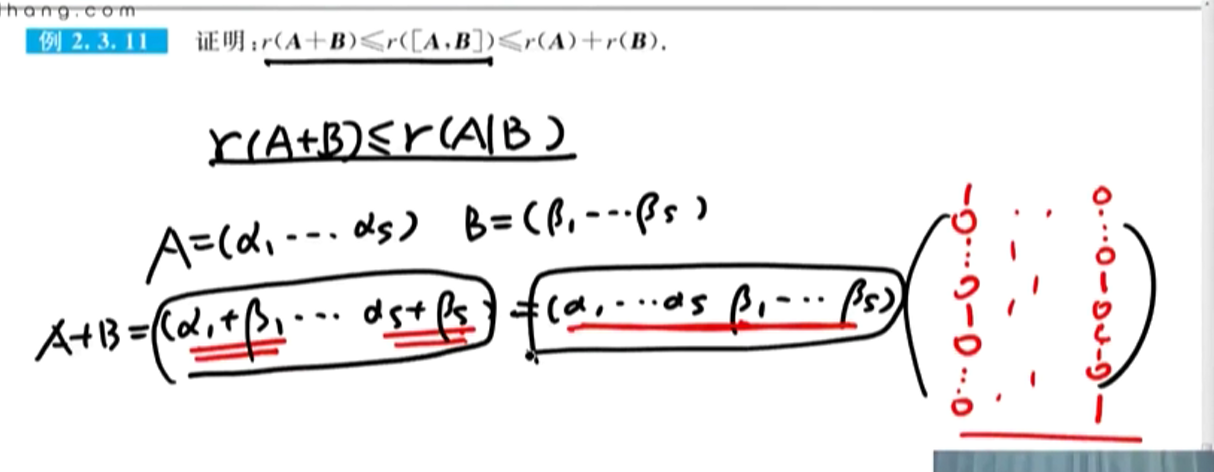 hang.com
例 2.3.11 证明:r(A+B)≤r([A,B])≤r(A)+r(B).
r(A+B)≤r(A|B)
A=(α₁ ---- αs) B=(β₁ ---- βs)
A+B=(α₁+β₁ --- αs+βs) = (α₁ ··· αs β₁ --- βs)
1 · · 0
0 ⋮
⋮ 1 0
0 1 1
1 1 0
0 ⋮
⋮ 1 0
0 · 1